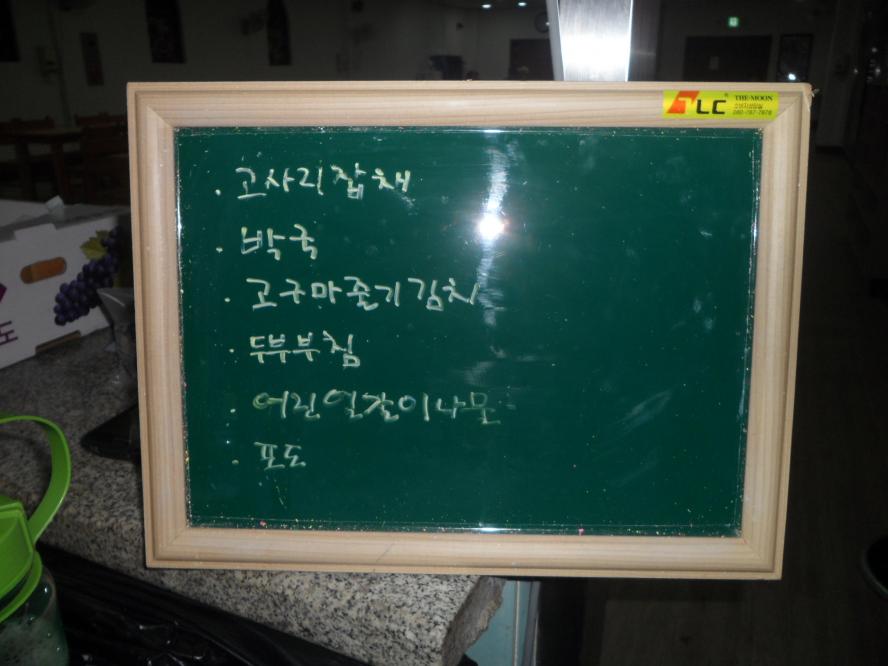 LC THE-MOON
080-787-7878
· 고사리잡채
· 박국
· 고구마줄기김치
· 두부부침
· 어린얼갈이나물
· 포도
도